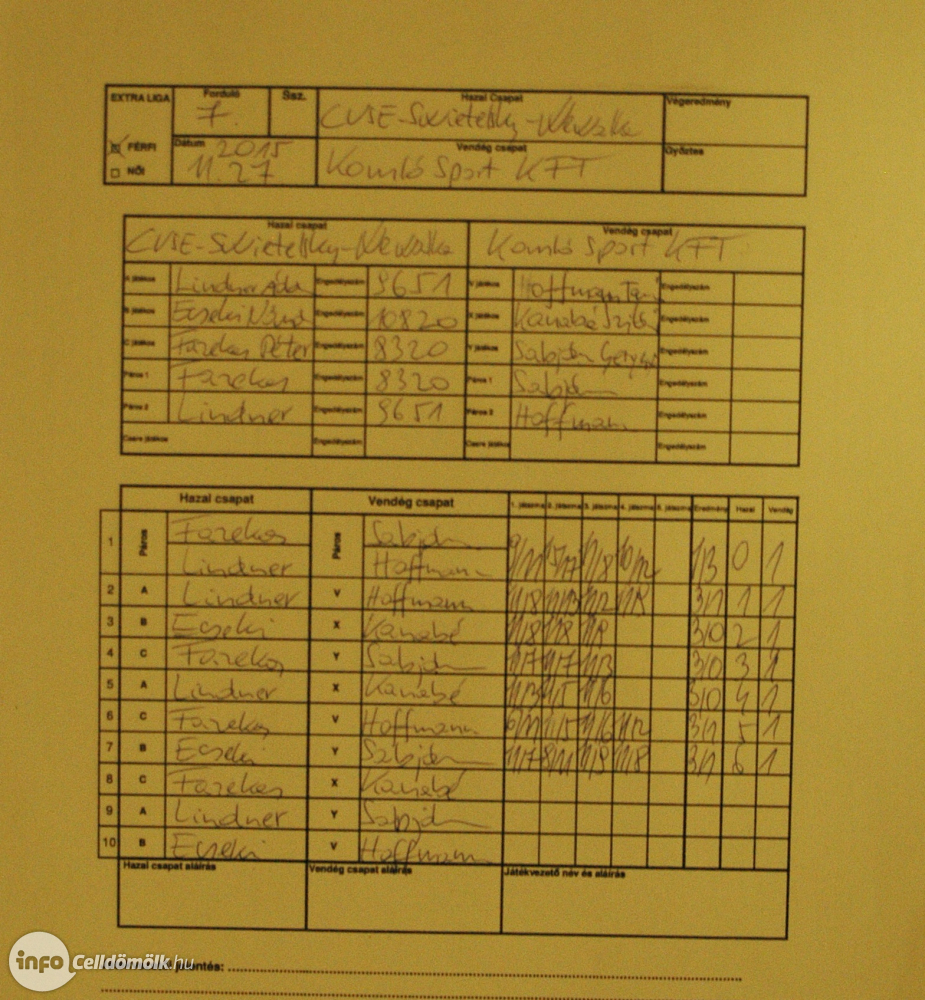 EXTRA LIGA Forduló Ssz. Hazai Csapat Végeredmény
7. CVSE-Swietelsky-Wewalka
FÉRFI Dátum Vendég csapat Győztes
NŐI 2015 11.27. Komló Sport KFT
Hazai csapat Vendég csapat
CVSE-Swietelsky-Wewalka Komló Sport KFT
A játékos Lindner Ádá Engedélyszám 9651 V játékos Hoffmann Engedélyszám
B játékos Ecseki Engedélyszám 10820 X játékos Kanabé Engedélyszám
C játékos Fazekas Péter Engedélyszám 8320 Y játékos Sabján Engedélyszám
Páros 1 Fazekas Engedélyszám 8320 Páros 1 Sabján Engedélyszám
Páros 2 Lindner Engedélyszám 9651 Páros 2 Hoffmann Engedélyszám
Csere játékos Engedélyszám Csere játékos Engedélyszám
Hazai csapat Vendég csapat 1. játszma 2. játszma 3. játszma 4. játszma 5. játszma Eredmény Hazai Vendég
1 Páros Fazekas Páros Sabján
Lindner Hoffmann 9/11 15/17 11/8 10/12 1/3 0 1
2 A Lindner V Hoffmann 11/8 3/1 1 1
3 B Ecseki X Kanabé 11/8 11/8 3/0 2 1
4 C Fazekas Y Sabján 11/7 11/3 3/0 3 1
5 A Lindner X Kanabé 11/3 11/5 11/6 3/0 4 1
6 C Fazekas V Hoffmann 11/6 3/1 5 1
7 B Ecseki Y Sabján 11/7 8/11 11/9 11/8 3/1 6 1
8 C Fazekas X Kanabé
9 A Lindner Y Sabján
10 B Ecseki V Hoffmann
Hazai csapat aláírás Vendég csapat aláírás Játékvezető név és aláírás
info Celldömölk.hu